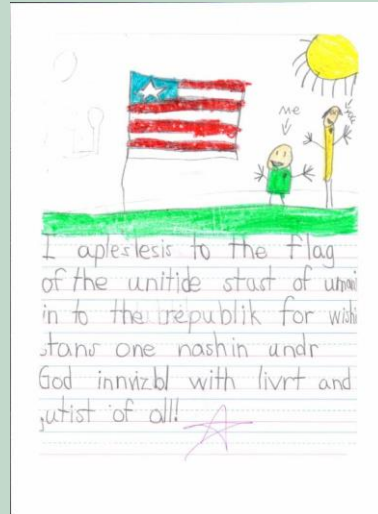 me
I apleslesis to the flag
of the unitide stast of
in to the republik for wishi
stans one nashin undr
God innvizbl with livrt and
jutist of all!